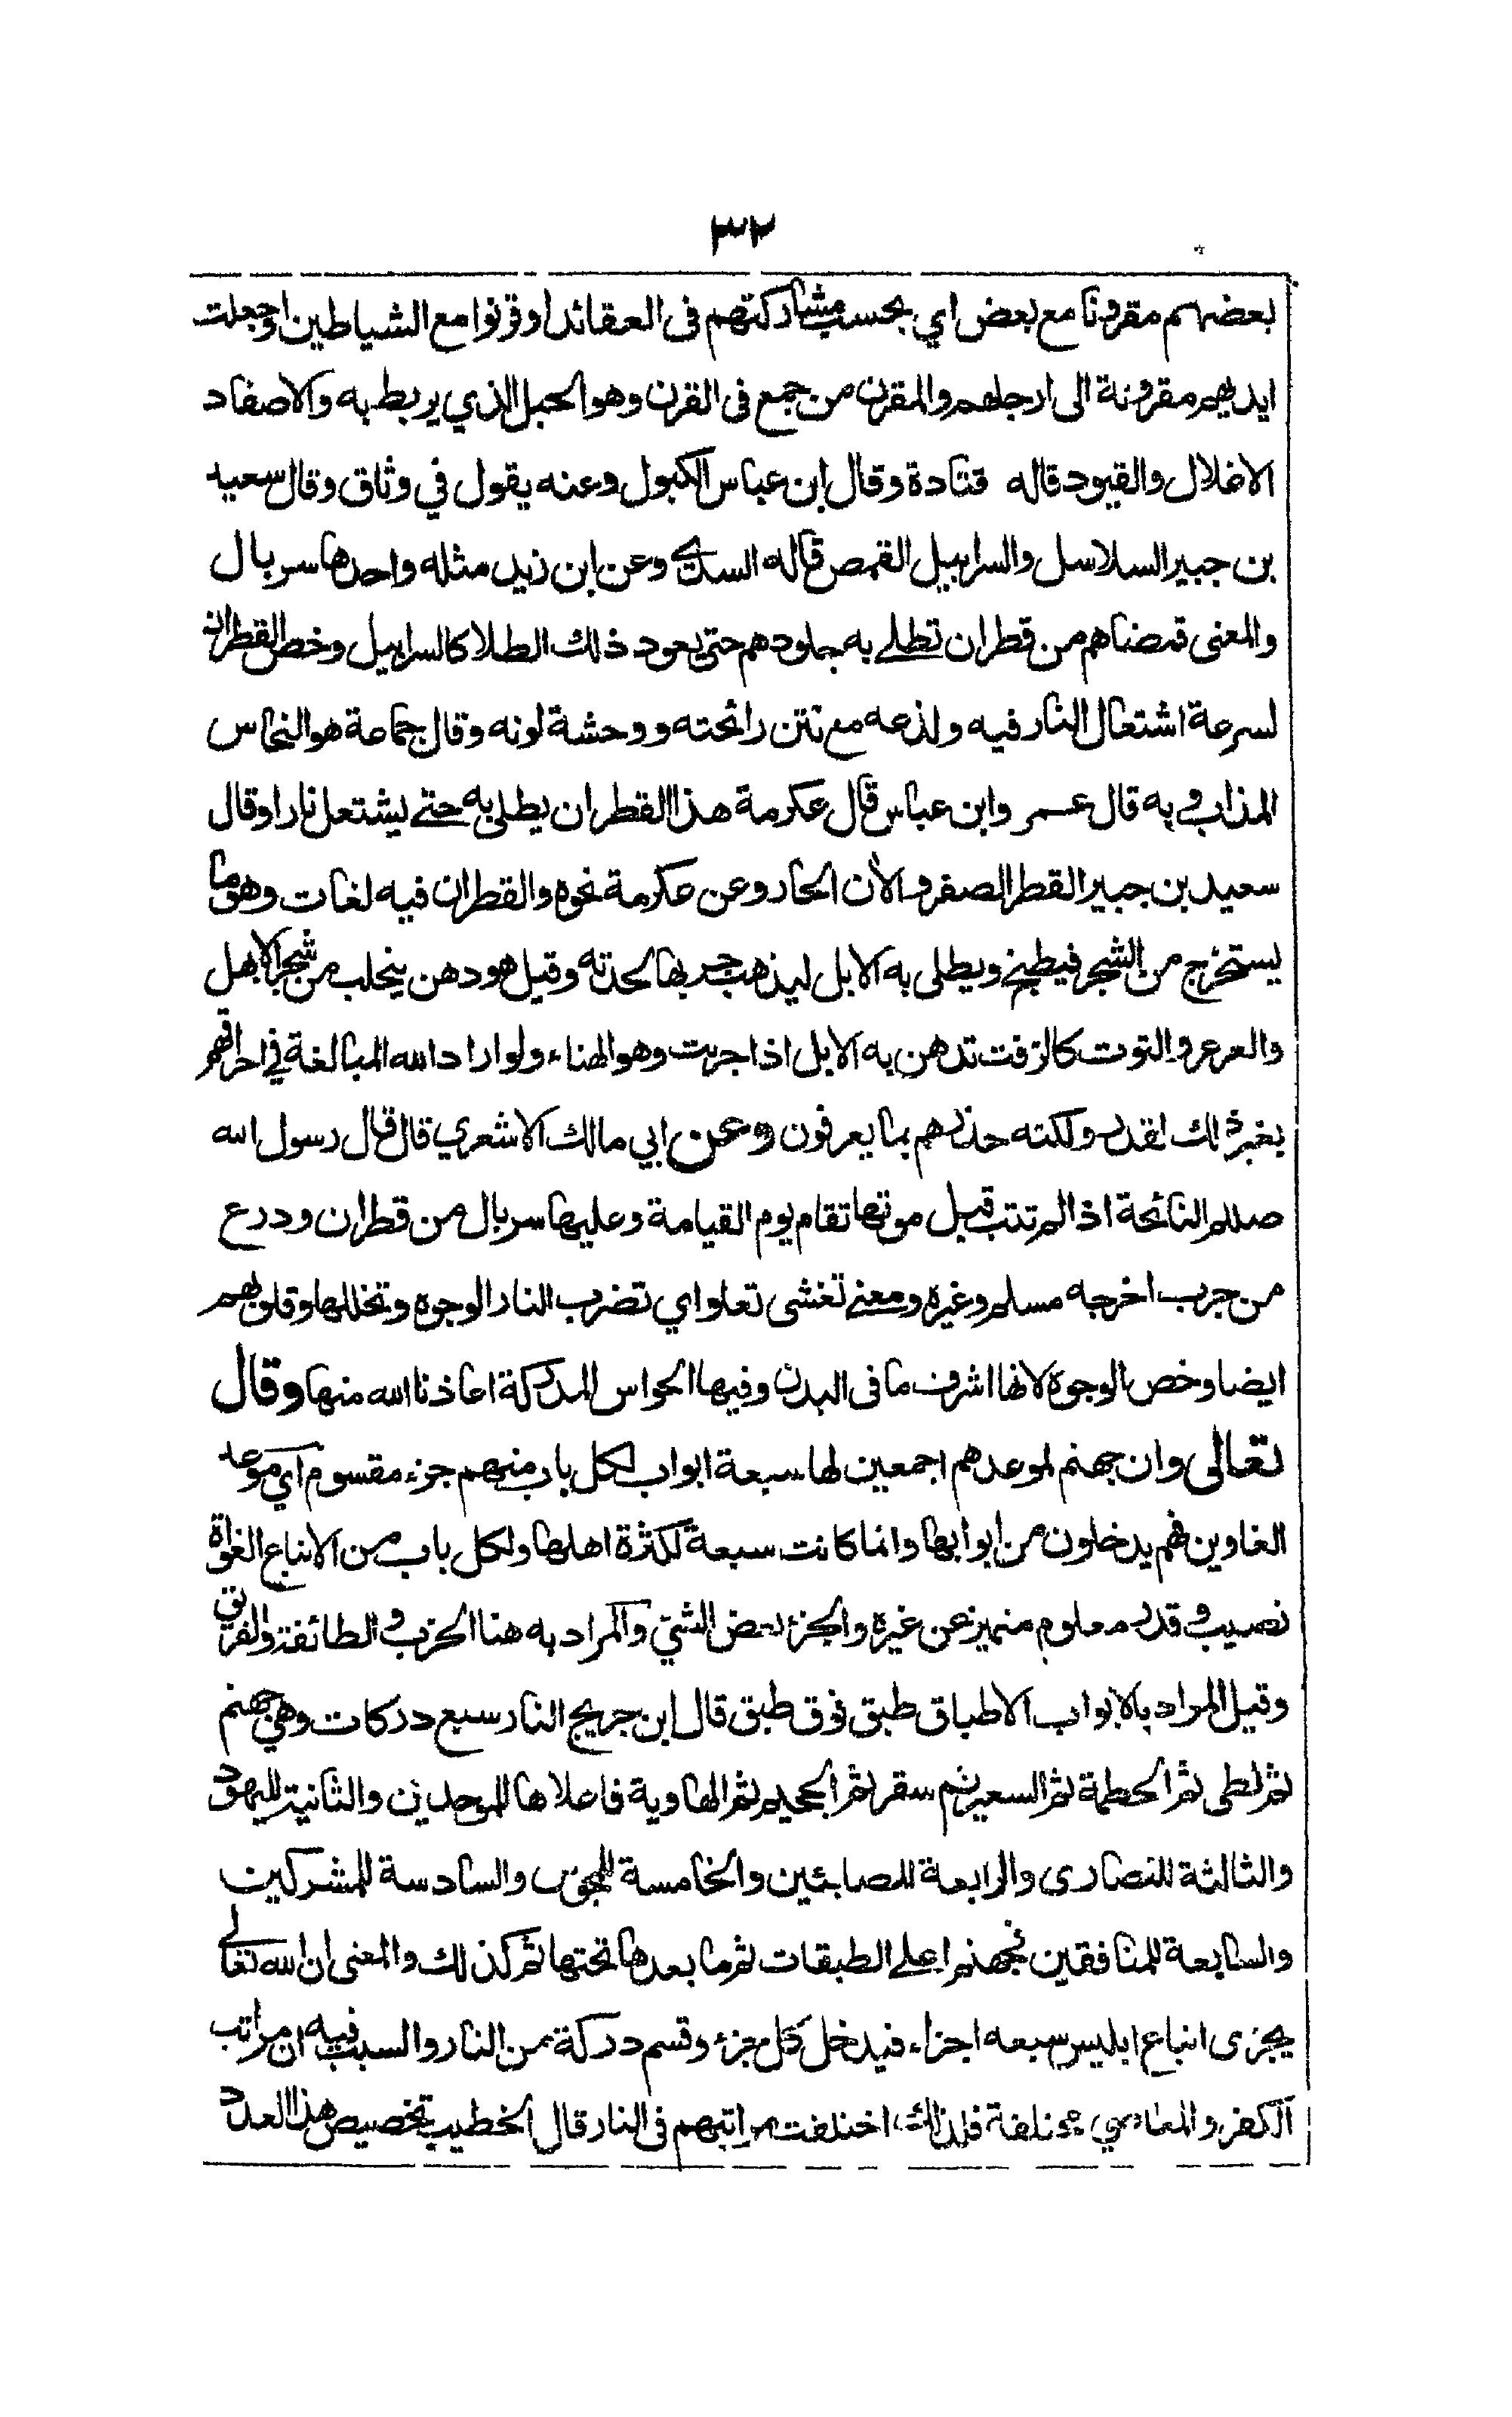 ٣٢
بعضهم مقرونا مع بعض اي بحسب مشاركتهم فى العقائد او قرنوا مع الشياطين او جعلت
ايديهم مقرونة الى ارجلهم والمقرن من جمع فى القرن وهو الحبل الذي يربط به والاصفاد
الاغلال والقيود قاله قتادة وقال ابن عباس الكبول وعنه يقول في وثاق وقال سعيد
بن جبير السلاسل والسرابيل القمص قاله السدي وعن ابن زيد مثله واحدها سربال
والمعنى قمصناهم من قطران تطلے به جلودهم حتى يعود ذلك الطلا كالسرابيل وخص القطران
لسرعة اشتعال النار فيه ولذعه مع نتن رائحته ووحشة لونه وقال جماعة هو النحاس
المذاب وبه قال عمر وابن عباس قال عكرمة هذا القطران يطلى به حتے يشتعل نارا وقال
سعيد بن جبير القطر الصفر والأن الحار وعن عكرمة نحوه والقطران فيه لغات وهو ما
يستخرج من الشجر فيطبخ ويطلى به الابل ليذهب جربها لحدته وقيل هو دهن ينحلب من شجر الابهل
والعرعر والتوت كالزفت تدهن به الابل اذا جربت وهو الهناء ولو اراد الله المبالغة في احراقهم
بغير ذلك لقدر ولكنه حذرهم بما يعرفون وعن ابي مالك الاشعري قال قال رسول الله
صللم النائحة اذا لم تتب قبل موتها تقام يوم القيامة وعليها سربال من قطران ودرع
من جرب اخرجه مسلم وغيره ومعنے تغشى تعلو اي تضرب النار الوجوه وتخللها وقلوبهم
ايضا وخص الوجوة لانها اشرف ما فى البدن وفيها الحواس المدركة اعاذنا الله منها وقال
تعالى وان جهنم لموعدهم اجمعين لها سبعة ابواب لكل باب منهم جزء مقسوم اي موعد
الغاوين فهم يدخلون من ابوابها وانما كانت سبعة لكثرة اهلها ولكل باب من الاتباع الغواة
نصيب وقدر معلوم متميز عن غيره والجزء بعض الشئ والمراد به هنا الحزب والطائفة والفريق
وقيل المراد بالابواب الاطباق طبق فوق طبق قال ابن جريج النار سبع دركات وهي جهنم
ثم لظى ثم الحطمة ثم السعير ثم سقر ثم الجحيم ثم الهاوية فاعلاها للموحدين والثانية لليهود
والثالثة للنصارى والرابعة للصابئين والخامسة للمجوس والسادسة للمشركين
والسابعة للمنافقين فجهنم اعلے الطبقات ثم ما بعدها تحتها ثم كذلك والمعنى ان الله تعالے
يجزى اتباع ابليس سبعه اجزاء فيدخل كل جزء وقسم دركة من النار والسبب فيه ان مراتب
الكفر والمعاصي مختلفة فلذلك اختلفت مراتبهم فى النار قال الخطيب تخصيص هذا العدد